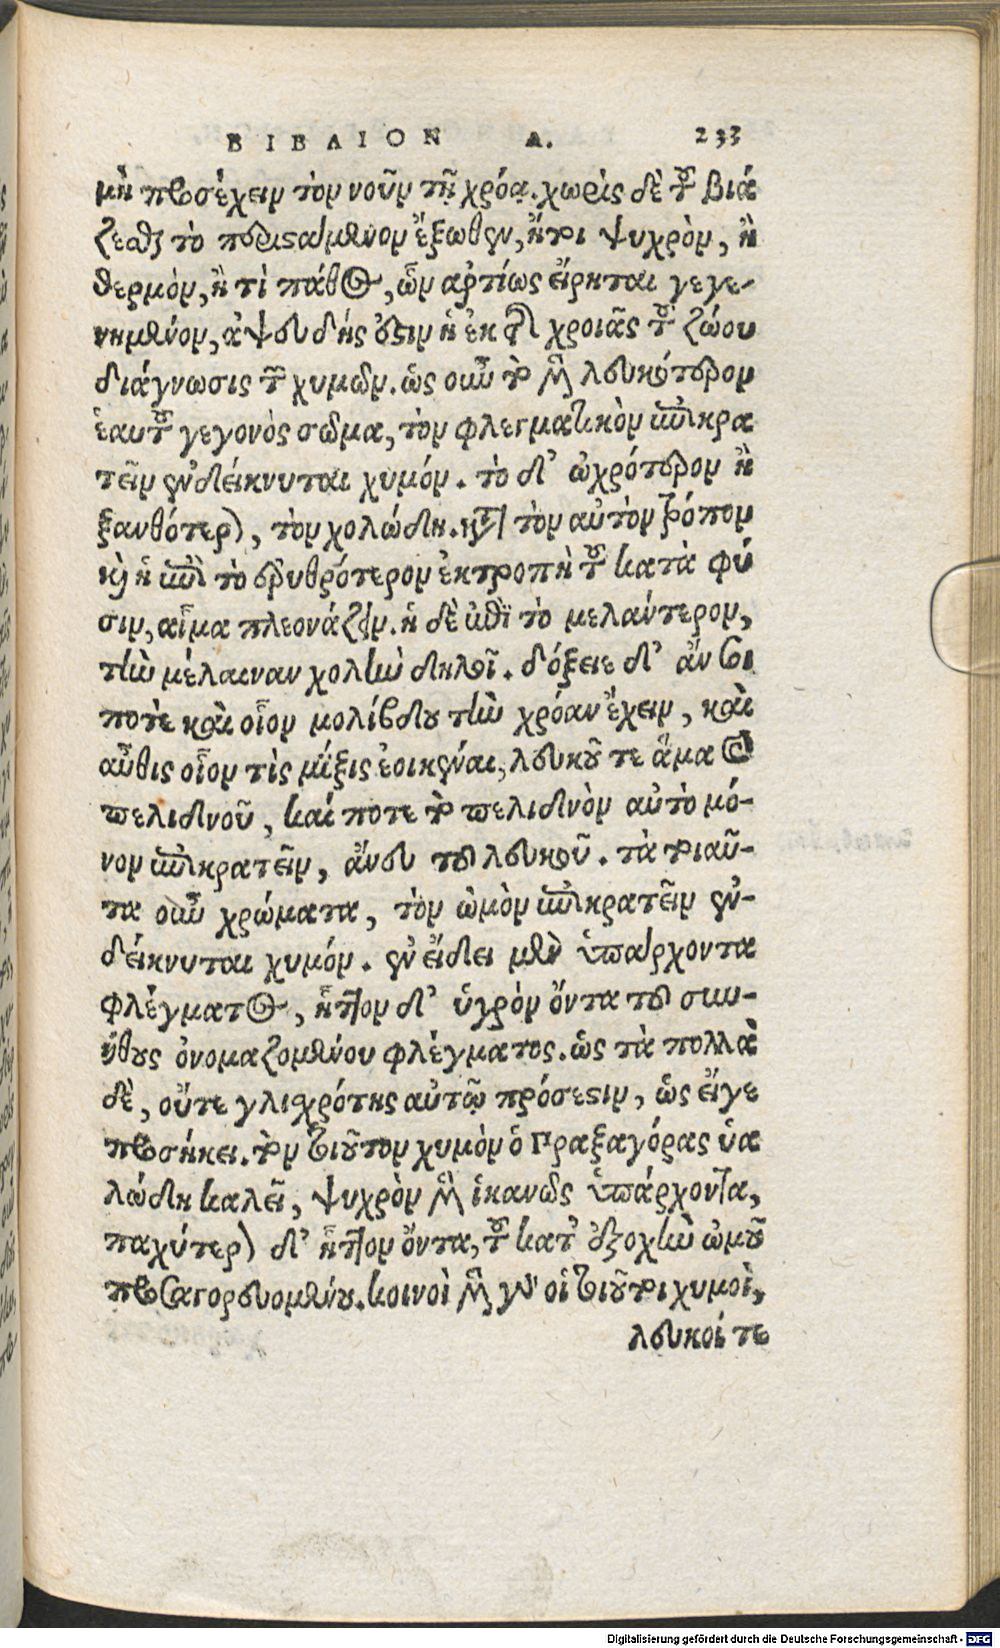 ΒΙΒΛΙΟΝ Α. 233
μὴ προσέχειν τὸν νοῦν τῇ χρόᾳ. χωρὶς δὲ τοῦ βιά
ζεσθαι τὸ περιϊστάμενον ἔξωθεν, ἤτοι ψυχρὸν, ἢ
θερμὸν, ἤ τι πάθος, ὧν ἀρτίως εἴρηται γεγε-
νημένον, ἀψευδής ἐστιν ἡ ἐκ τῆς χροιᾶς τοῦ ζώου
διάγνωσις τῶν χυμῶν. ὡς οὖν τὸ μὲν λευκότερον
ἑαυτοῦ γεγονὸς σῶμα, τὸν φλεγματικὸν ἐπικρα
τεῖν ἐνδείκνυται χυμόν. τὸ δ' ὠχρότερον ἢ
ξανθότερον, τὸν χολώδη. κατὰ τὸν αὐτὸν τρόπον
καὶ ἡ ἐπὶ τὸ ἐρυθρότερον ἐκτροπὴ τοῦ κατὰ φύ
σιν, αἷμα πλεονάζειν. ἡ δὲ ἐπὶ τὸ μελάντερον,
τὴν μέλαιναν χολὴν δηλοῖ. δόξειε δ' ἄν σοι
ποτὲ καὶ οἷον μολίβδου τὴν χρόαν ἔχειν, καὶ
αὖθις οἷον τὶς μίξις ἐοικέναι, λευκοῦ τε ἅμα καὶ
πελιδνοῦ, καί ποτε τὸ πελιδνὸν αὐτὸ μό-
νον ἐπικρατεῖν, ἄνευ τοῦ λευκοῦ. τὰ τοιαῦ-
τα οὖν χρώματα, τὸν ὠμὸν ἐπικρατεῖν ἐν-
δείκνυται χυμόν. ἐν εἴδει μὲν ὑπάρχοντα
φλέγματος, ἧττον δ' ὑγρὸν ὄντα τοῦ συν-
ήθους ὀνομαζομένου φλέγματος. ὡς τὰ πολλὰ
δὲ, οὔτε γλισχρότης αὐτῷ πρόσεστιν, ὡς εἴγε
προσήκει. τὸν τοιοῦτον χυμὸν ὁ Πραξαγόρας ὑα
λώδη καλεῖ, ψυχρὸν μὲν ἱκανῶς ὑπάρχοντα,
παχύτερον δ' ἧττον ὄντα, τοῦ κατ' ἐξοχὴν ὠμοῦ
προσαγορευομένου. κοινοὶ μὲν γὰρ οἱ τοιοῦτοι χυμοὶ,
λευκοί τε
Digitalisierung gefördert durch die Deutsche Forschungsgemeinschaft - DFG